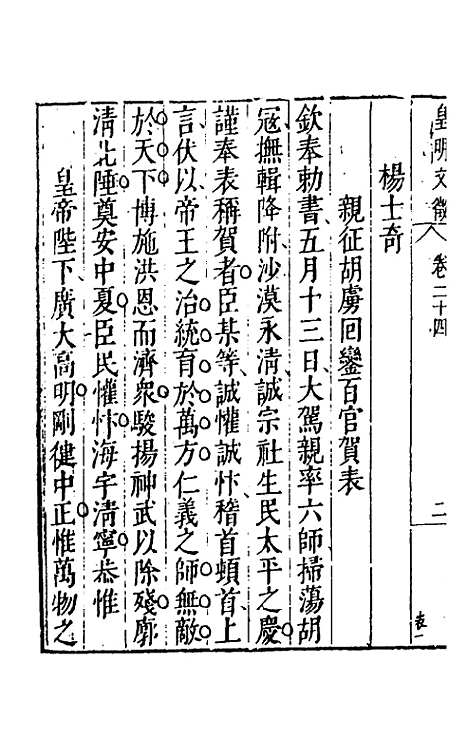 皇明文徵 卷二十四 二 表一
楊士奇
親征胡虜回鑾百官賀表
欽奉勅書五月十三日大駕親率六師掃蕩胡
宼撫輯降附沙漠永清誠宗社生民太平之慶
謹奉表稱賀者臣某等誠懽誠忭稽首頓首上
言伏以帝王之治統育於萬方仁義之師無敵
於天下博施洪恩而濟衆駿揚神武以除殘廓
清北陲奠安中夏臣民懽忭海宇清寧恭惟
皇帝陛下廣大高明剛健中正惟萬物之